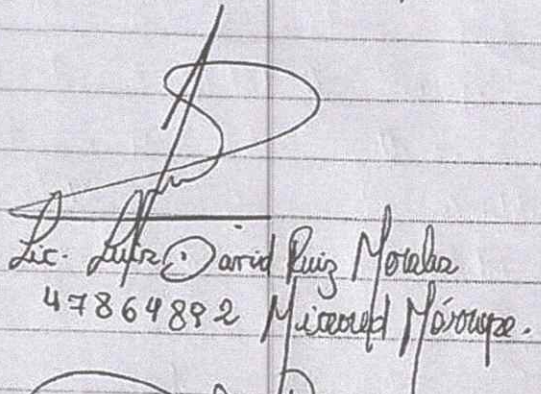 Lic. Luis David Ruiz Morales
47864892 Micored Mórrope.